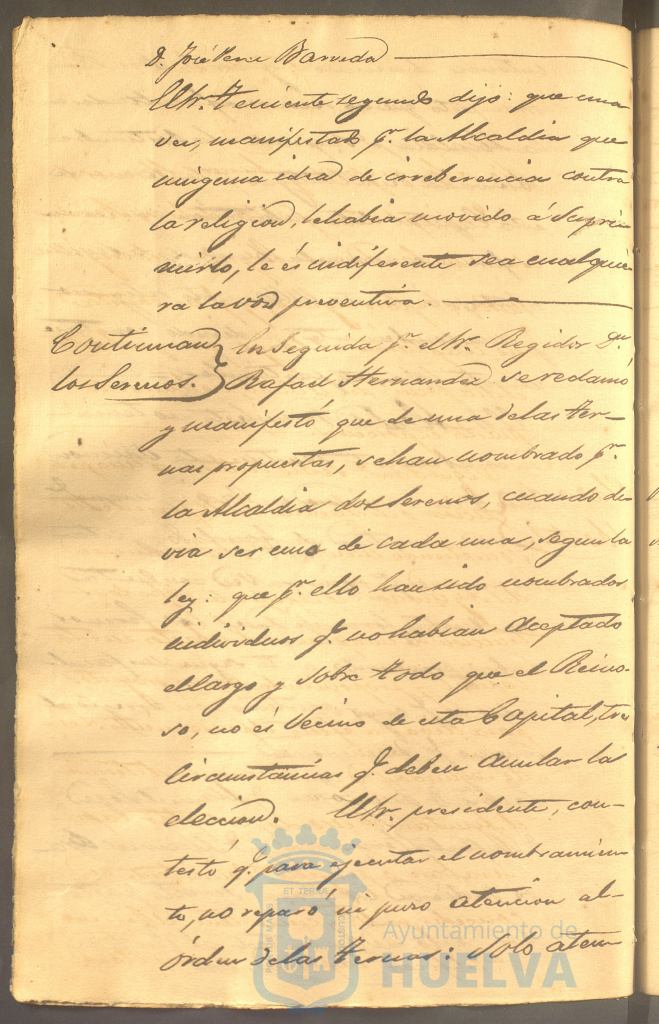 D. José Perez Barreda
El Sr. Teniente segundo dijo: que una
vez, manifestado pr. la Alcaldia que
ninguna idea de irreberencia contra
la religion, le habia movido á supri-
mirlo, le és indiferente sea cualquie
ra la voz preventiva.
Continuan
los Serenos.
En seguida pr. el Sr. Regidor Dn.
Rafael Hernandez se reclamó
y manifestó que de una de las ter-
nas propuestas, se han nombrado pr.
la Alcaldia dos Serenos, cuando de
via ser uno de cada una, segun la
ley: que pr. ello han sido nombrados
individuos qe. no habian aceptado
el cargo y sobre todo que el Reino-
so, no és vecino de esta Capital, tres
circunstancias qe. deben anular la
eleccion. El Sr. presidente, con-
testó qe. para ejecutar el nombramien
to, no reparó ni puso atencion al
órden de las ternas: solo aten
Ayuntamiento de
HUELVA